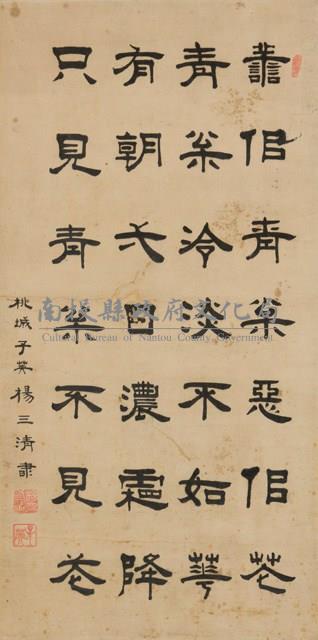 譱佀青枩惡佀花
青枩冷淡不如華
有朝弌日濃霜降
只見青枩不見花
桃城子英楊三清肅
南投縣政府文化局
Cultural Bureau of Nantou County Government